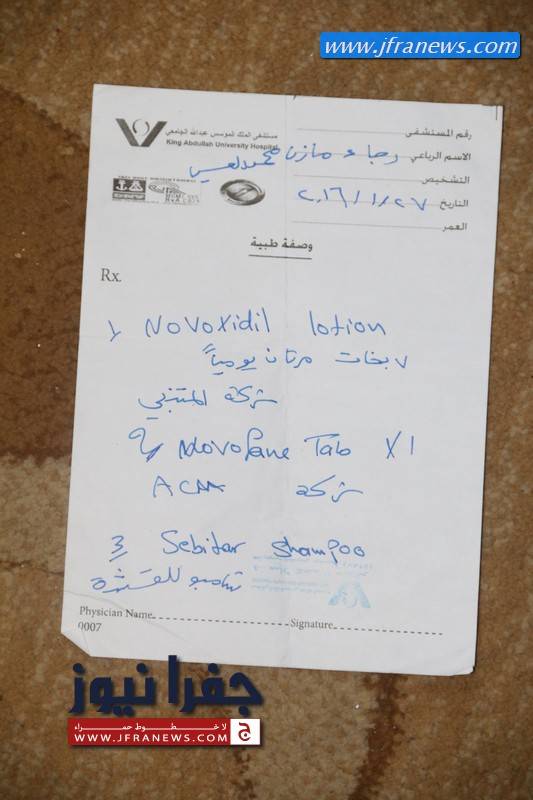 www.jfranews.com
مستشفى الملك المؤسس عبدالله الجامعي
King Abdullah University Hospital
رقم المستشفى
الاسم الرباعي رجاء مازن محمود
التشخيص
التاريخ ٢٠١٦/١/٢٧
العمر
وصفة طبية
Rx.
1 Novoxidil lotion
٧ بخات مرتان يومياً
شركة المتنبي
2 Novopane Tab X1
شركة ACM
3 Sebitar shampoo
شامبو للقشرة
Physician Name
Signature
0007
جفرا نيوز
لا خطوط حمراء
WWW.JFRANEWS.COM